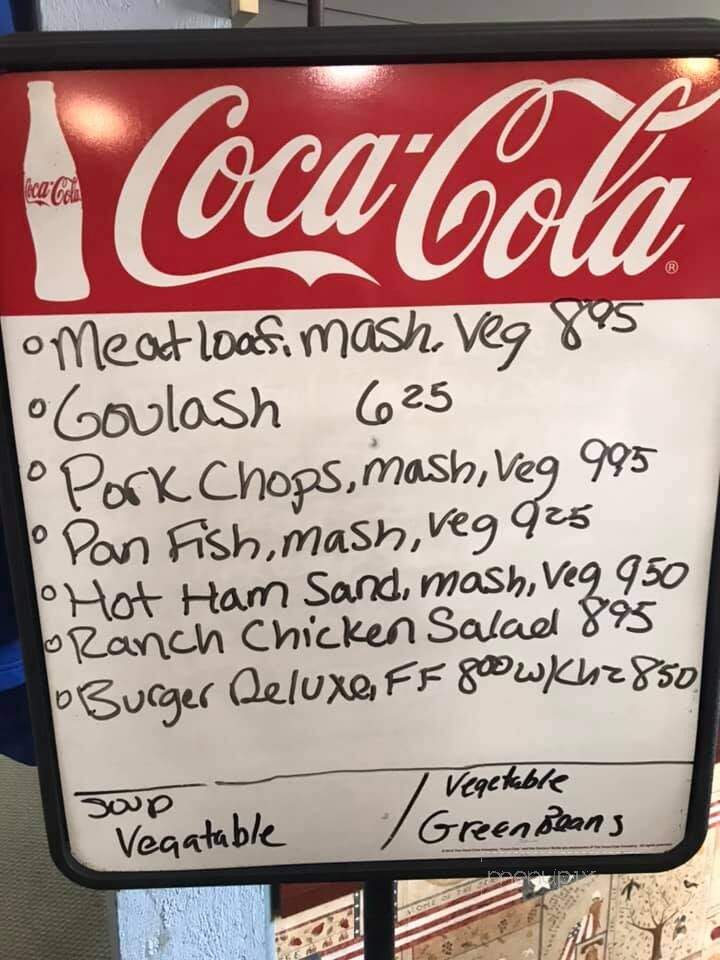 Coca-Cola
Coca-Cola ®
Meatloaf, mash, Veg 8 95
Goulash 6 25
Pork Chops, mash, Veg 9 95
Pan Fish, mash, veg 9 25
Hot Ham Sand, mash, Veg 9 50
Ranch Chicken Salad 8 95
Burger Deluxe, FF 8 00 w/Chz 8 50
Soup
Vegatable
Vegetable
Green Beans